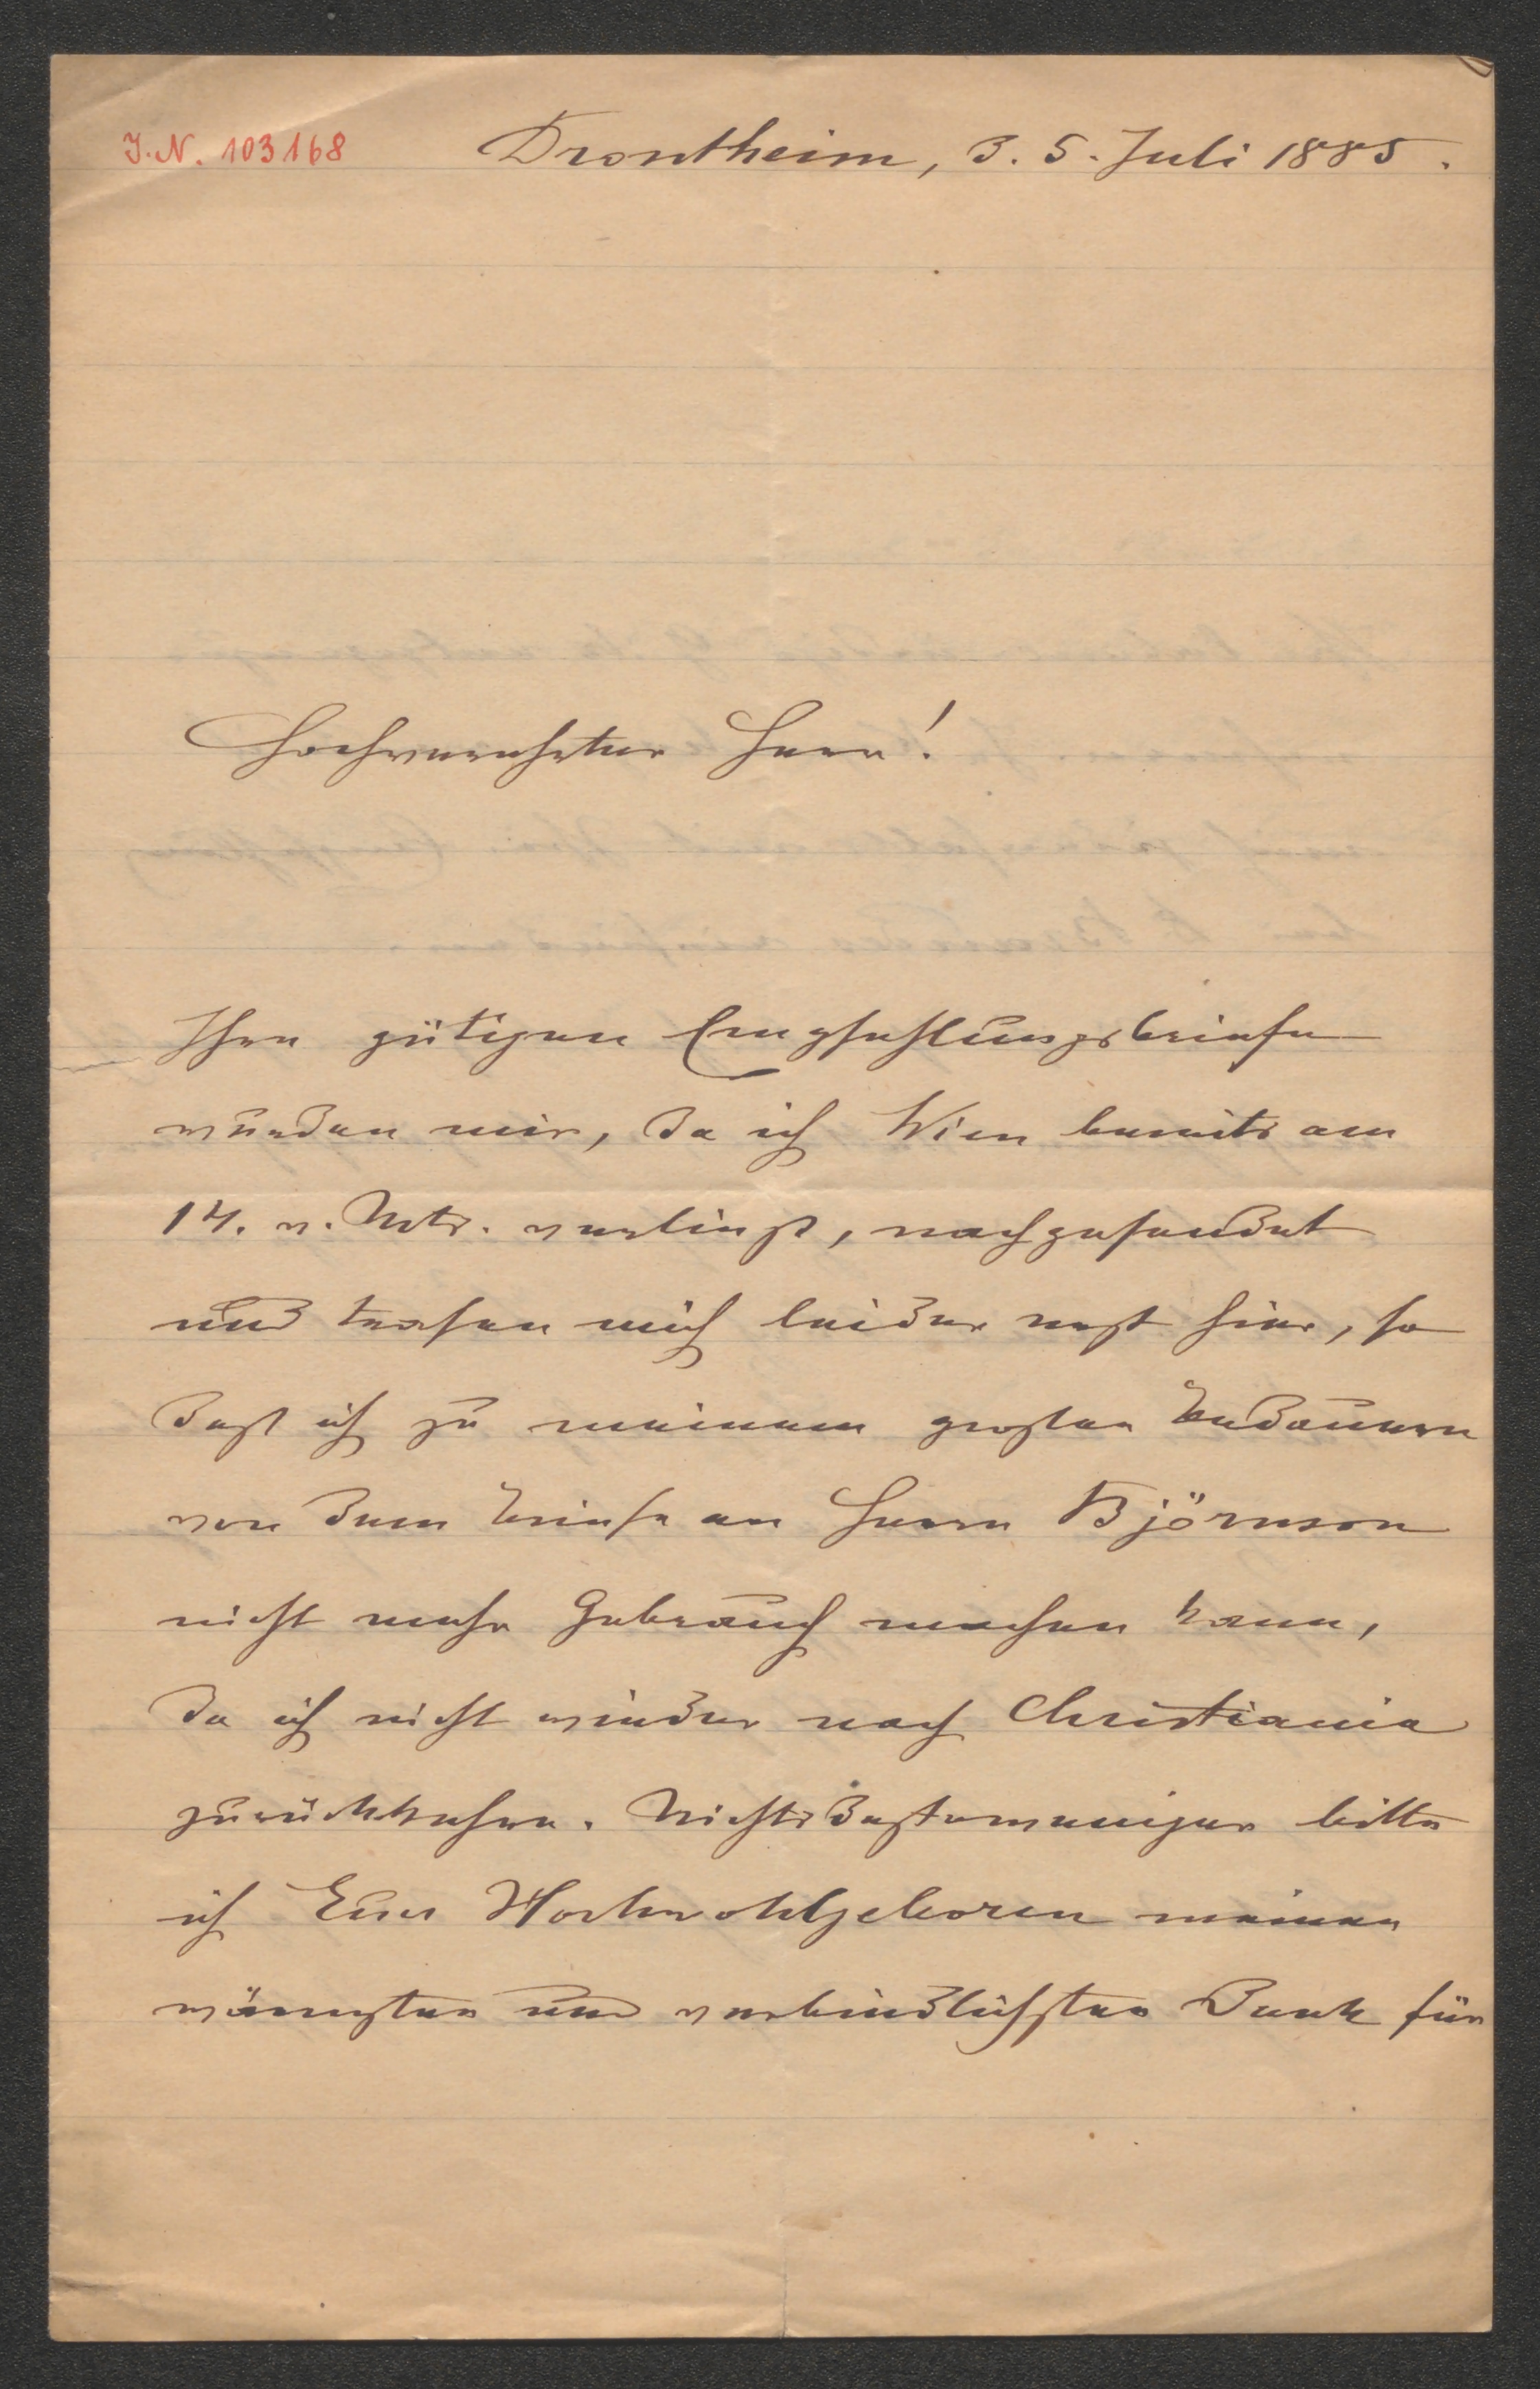 J. N. 103168
Drontheim, d. 5. Juli 1885.
Hochverehrter Herr!
Ihre gütigen Empfehlungsbriefe
wurden mir, da ich Wien bereits am
14. v. Mts. verließ, nachgesendet
und trafen mich leider erst hier, so
daß ich zu meinem großen Bedauern
von dem Briefe an Herrn Björnson
nicht mehr Gebrauch machen kann,
da ich nicht wieder nach Christiania
zurückkehre. Nichtsdestoweniger bitte
ich Euer Hochwohlgeboren meinen
wärmsten und verbindlichsten Dank für